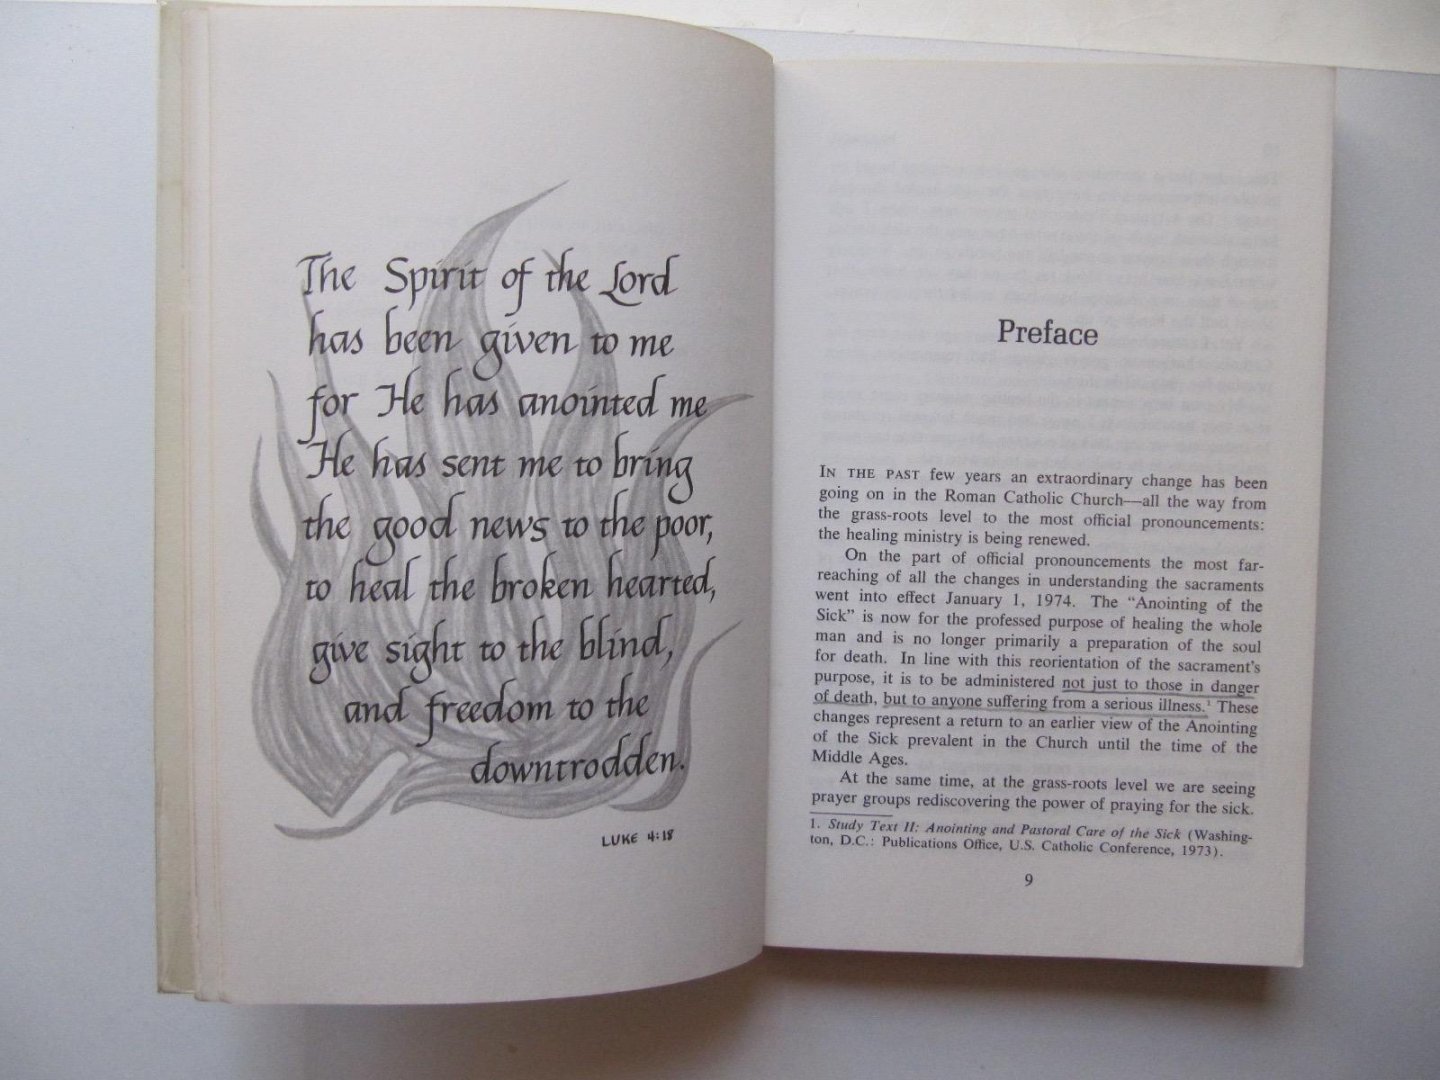 The Spirit of the Lord
has been given to me
for He has anointed me
He has sent me to bring
the good news to the poor,
to heal the broken hearted,
give sight to the blind,
and freedom to the
downtrodden.
LUKE 4:18
Preface
IN THE PAST few years an extraordinary change has been
going on in the Roman Catholic Church—all the way from
the grass-roots level to the most official pronouncements:
the healing ministry is being renewed.
On the part of official pronouncements the most far-
reaching of all the changes in understanding the sacraments
went into effect January 1, 1974. The “Anointing of the
Sick” is now for the professed purpose of healing the whole
man and is no longer primarily a preparation of the soul
for death. In line with this reorientation of the sacrament’s
purpose, it is to be administered not just to those in danger
of death, but to anyone suffering from a serious illness.¹ These
changes represent a return to an earlier view of the Anointing
of the Sick prevalent in the Church until the time of the
Middle Ages.
At the same time, at the grass-roots level we are seeing
prayer groups rediscovering the power of praying for the sick.
1. Study Text II: Anointing and Pastoral Care of the Sick (Washing-
ton, D.C.: Publications Office, U.S. Catholic Conference, 1973).
9